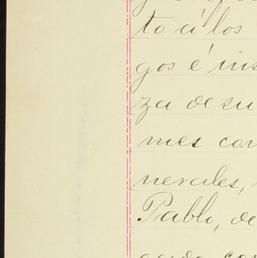 to á los
gos é ins
za de su
mes con
nerales,
Pablo, de